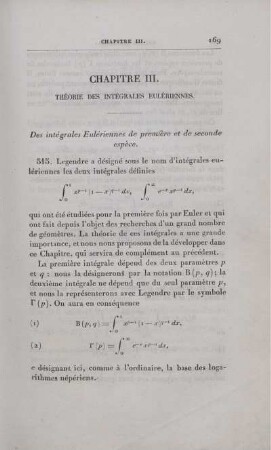 CHAPITRE III. 169
CHAPITRE III.
THÉORIE DES INTÉGRALES EULÉRIENNES.
Des intégrales Eulériennes de première et de seconde
espèce.
515. Legendre a désigné sous le nom d'intégrales eu-
lériennes les deux intégrales définies
∫₀¹ xᵖ⁻¹ (1 − x)^{q−1} dx, ∫₀^∞ e⁻ˣ xᵖ⁻¹ dx,
qui ont été étudiées pour la première fois par Euler et qui
ont fait depuis l'objet des recherches d'un grand nombre
de géomètres. La théorie de ces intégrales a une grande
importance, et nous nous proposons de la développer dans
ce Chapitre, qui servira de complément au précédent.
La première intégrale dépend des deux paramètres p
et q : nous la désignerons par la notation B(p, q); la
deuxième intégrale ne dépend que du seul paramètre p,
et nous la représenterons avec Legendre par le symbole
Γ(p). On aura en conséquence
(1) B(p, q) = ∫₀¹ xᵖ⁻¹ (1 − x)^{q−1} dx,
(2) Γ(p) = ∫₀^∞ e⁻ˣ xᵖ⁻¹ dx,
e désignant ici, comme à l'ordinaire, la base des loga-
rithmes népériens.